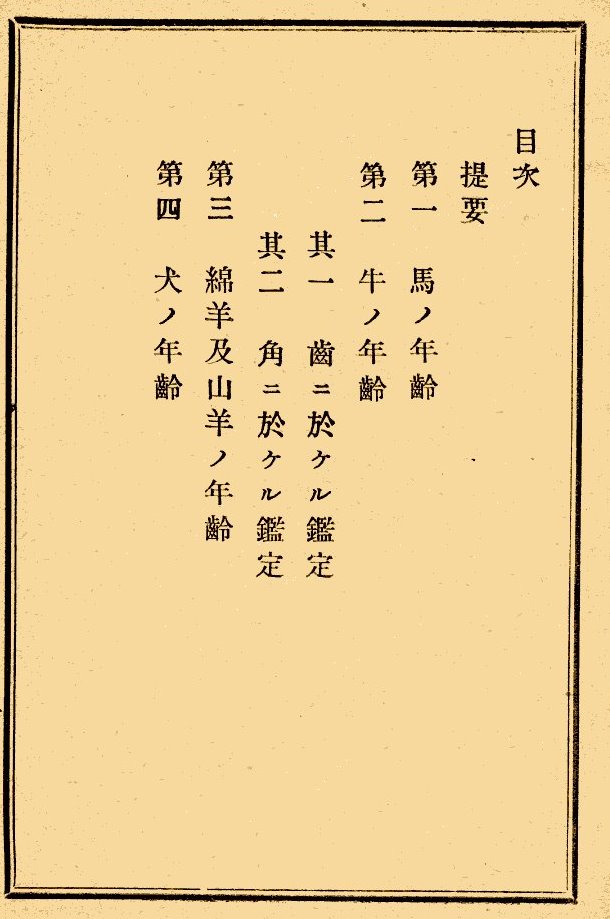 目次
提要
第一　馬ノ年齡
第二　牛ノ年齡
其一　齒ニ於ケル鑑定
其二　角ニ於ケル鑑定
第三　綿羊及山羊ノ年齡
第四　犬ノ年齡